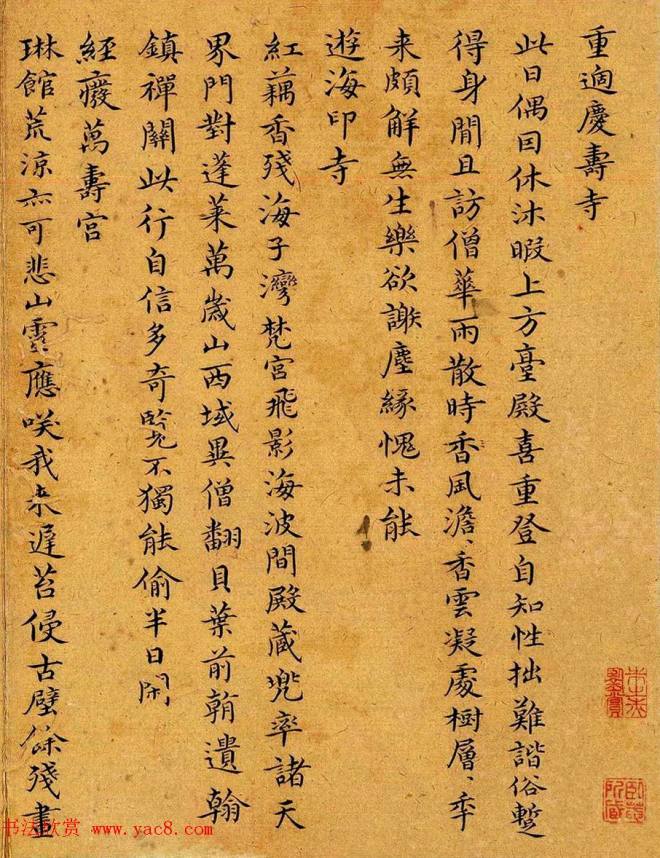 重適慶壽寺
此日偶因休沐暇上方臺殿喜重登自知性拙難諧俗暫
得身閒且訪僧華雨散時香風澹、香雲凝處樹層、年
来頗解無生樂欲謝塵緣愧未能
遊海印寺
紅藕香殘海子灣梵宮飛影海波間殿藏兜率諸天
界門對蓬萊萬歲山西域異僧翻貝葉前朝遺翰
鎮禪關此行自信多奇覽不獨能偷半日閑
經廢萬壽宮
琳館荒涼亦可悲山靈應咲我来遲苔侵古壁餘殘畫
书法欣赏 www.yac8.com